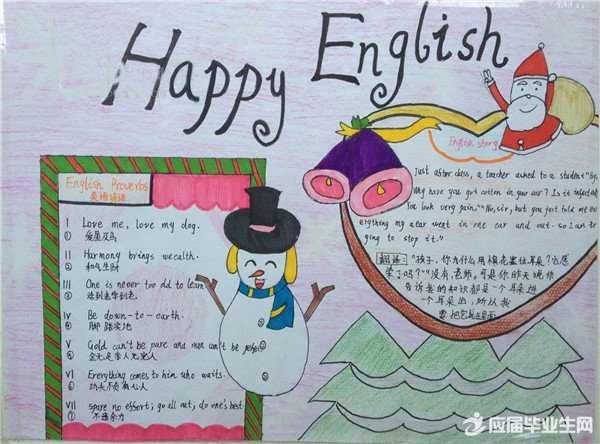 Happy English
English Proverbs
英语谚语
I Love me, love my dog.
① 爱屋及乌
II Harmony brings wealth.
② 和气生财
III One is never too old to learn
③ 活到老学到老
IV Be down-to-earth.
④ 脚踏实地
V Gold can't be pure and man can't be perfect
⑤ 金无足赤人无完人
VI Everything comes to him who waits.
⑥ 功夫不负有心人
VII spare no effort; go all out; do one's best
⑦ 不遗余力
English story
Just astor class, a teacher asked to a student "Boy,
Why have you got cotton in your ear? Is it infected
You look very pain." "No, sir, but you just told me
erything my near went in one ear and out. so I am tr
ying to stop it."
翻译: "孩子,你为什么用棉花塞住耳朵?它感
染了吗?" "没有,老师,可是你昨天晚
告诉我的知识都是一个耳朵进
一个耳朵出,所以我
要把它堵在里面
应届毕业生网